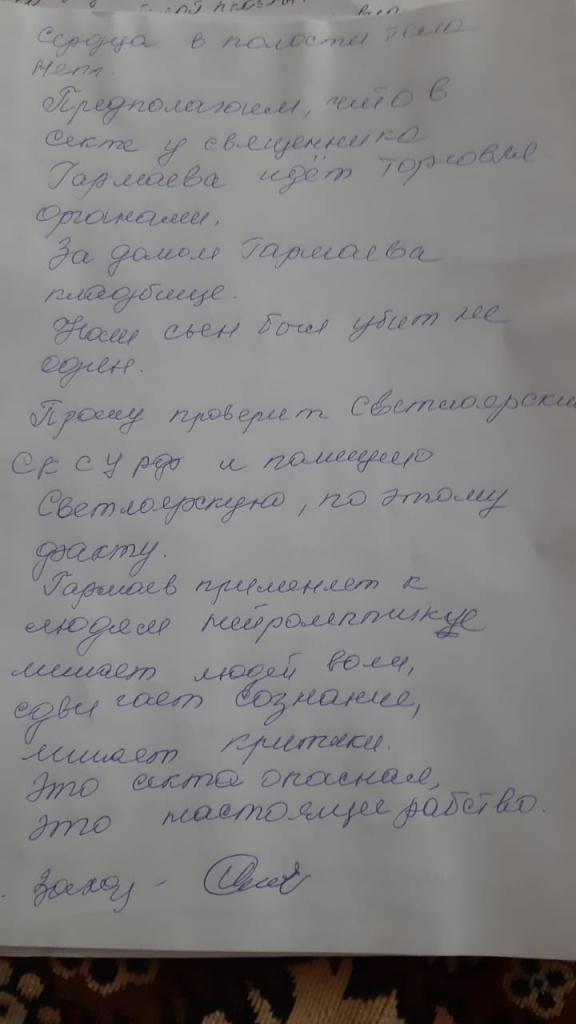 сердца в полости тела
нет.
Предполагаем, что в
секте у священника
Гармаева идёт торговля
органами.
За домом Гармаева
кладбище.
Наш сын был убит не
один.
Прошу проверит Светлоярский
СК СУ РФ и полицию
Светлоярскую, по этому
факту.
Гармаев применяет к
людям нейролептики
лишает людей воли,
сдвигает сознание,
лишает критики.
Это секта опасная,
это настоящее рабство.